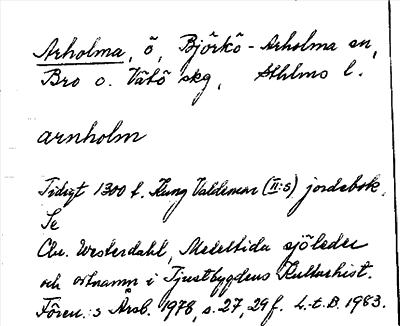 Arholma, ö, Björkö-Arholma sn,
Bro o. Vätö skg, Sthlms l.
arnholm
Tidigt 1300 t. Kung Valdemar (II:s) jordebok.
Se
Chr. Westerdahl, Medeltida sjöleder
och ortnamn i Tjustbygdens Kulturhist.
Fören:s Årsb. 1978, s. 27, 29 f. L.t.B. 1983.